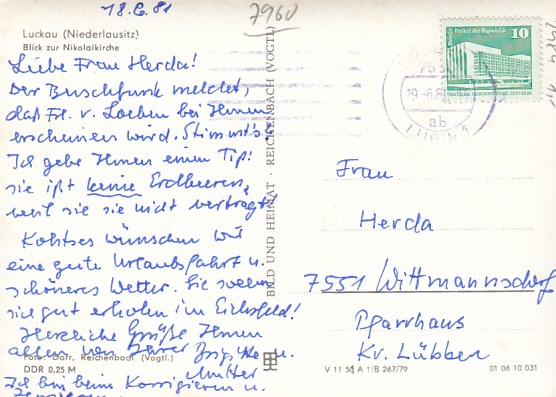 18.6.81
7960
Luckau (Niederlausitz)
Blick zur Nikolaikirche
Liebe Frau Herda!
Der Buschfunk meldet,
daß Frl. v. Loeben bei Ihnen
erscheinen wird. Stimmt's?
Ich gebe Ihnen einen Tip!
sie ißt keine Erdbeeren,
weil sie sie nicht verträgt.
wünschen wir
eine gute Urlaubsfahrt u.
schöneres Wetter. Sie sollen
sie gut erholen im Eichsfeld!
Herzliche Grüße Ihnen
allen von Ihrer Brigitte u.
Mutter
Foto: Darr, Reichenbach (Vogtl.)
DDR 0.25 M
Ich bin beim Korrigieren u.
BILD UND HEIMAT · REICHENBACH (VOGTL)
Palast der Republik
10
DEUTSCHE DEMOKRATISCHE REPUBLIK
19.-6.8
ab
LÜBBEN 1
Frau
Herda
7551 Wittmannsdorf
Pfarrhaus
Kr. Lübben
V 11 50 A 1/B 267/79
01 06 10 031